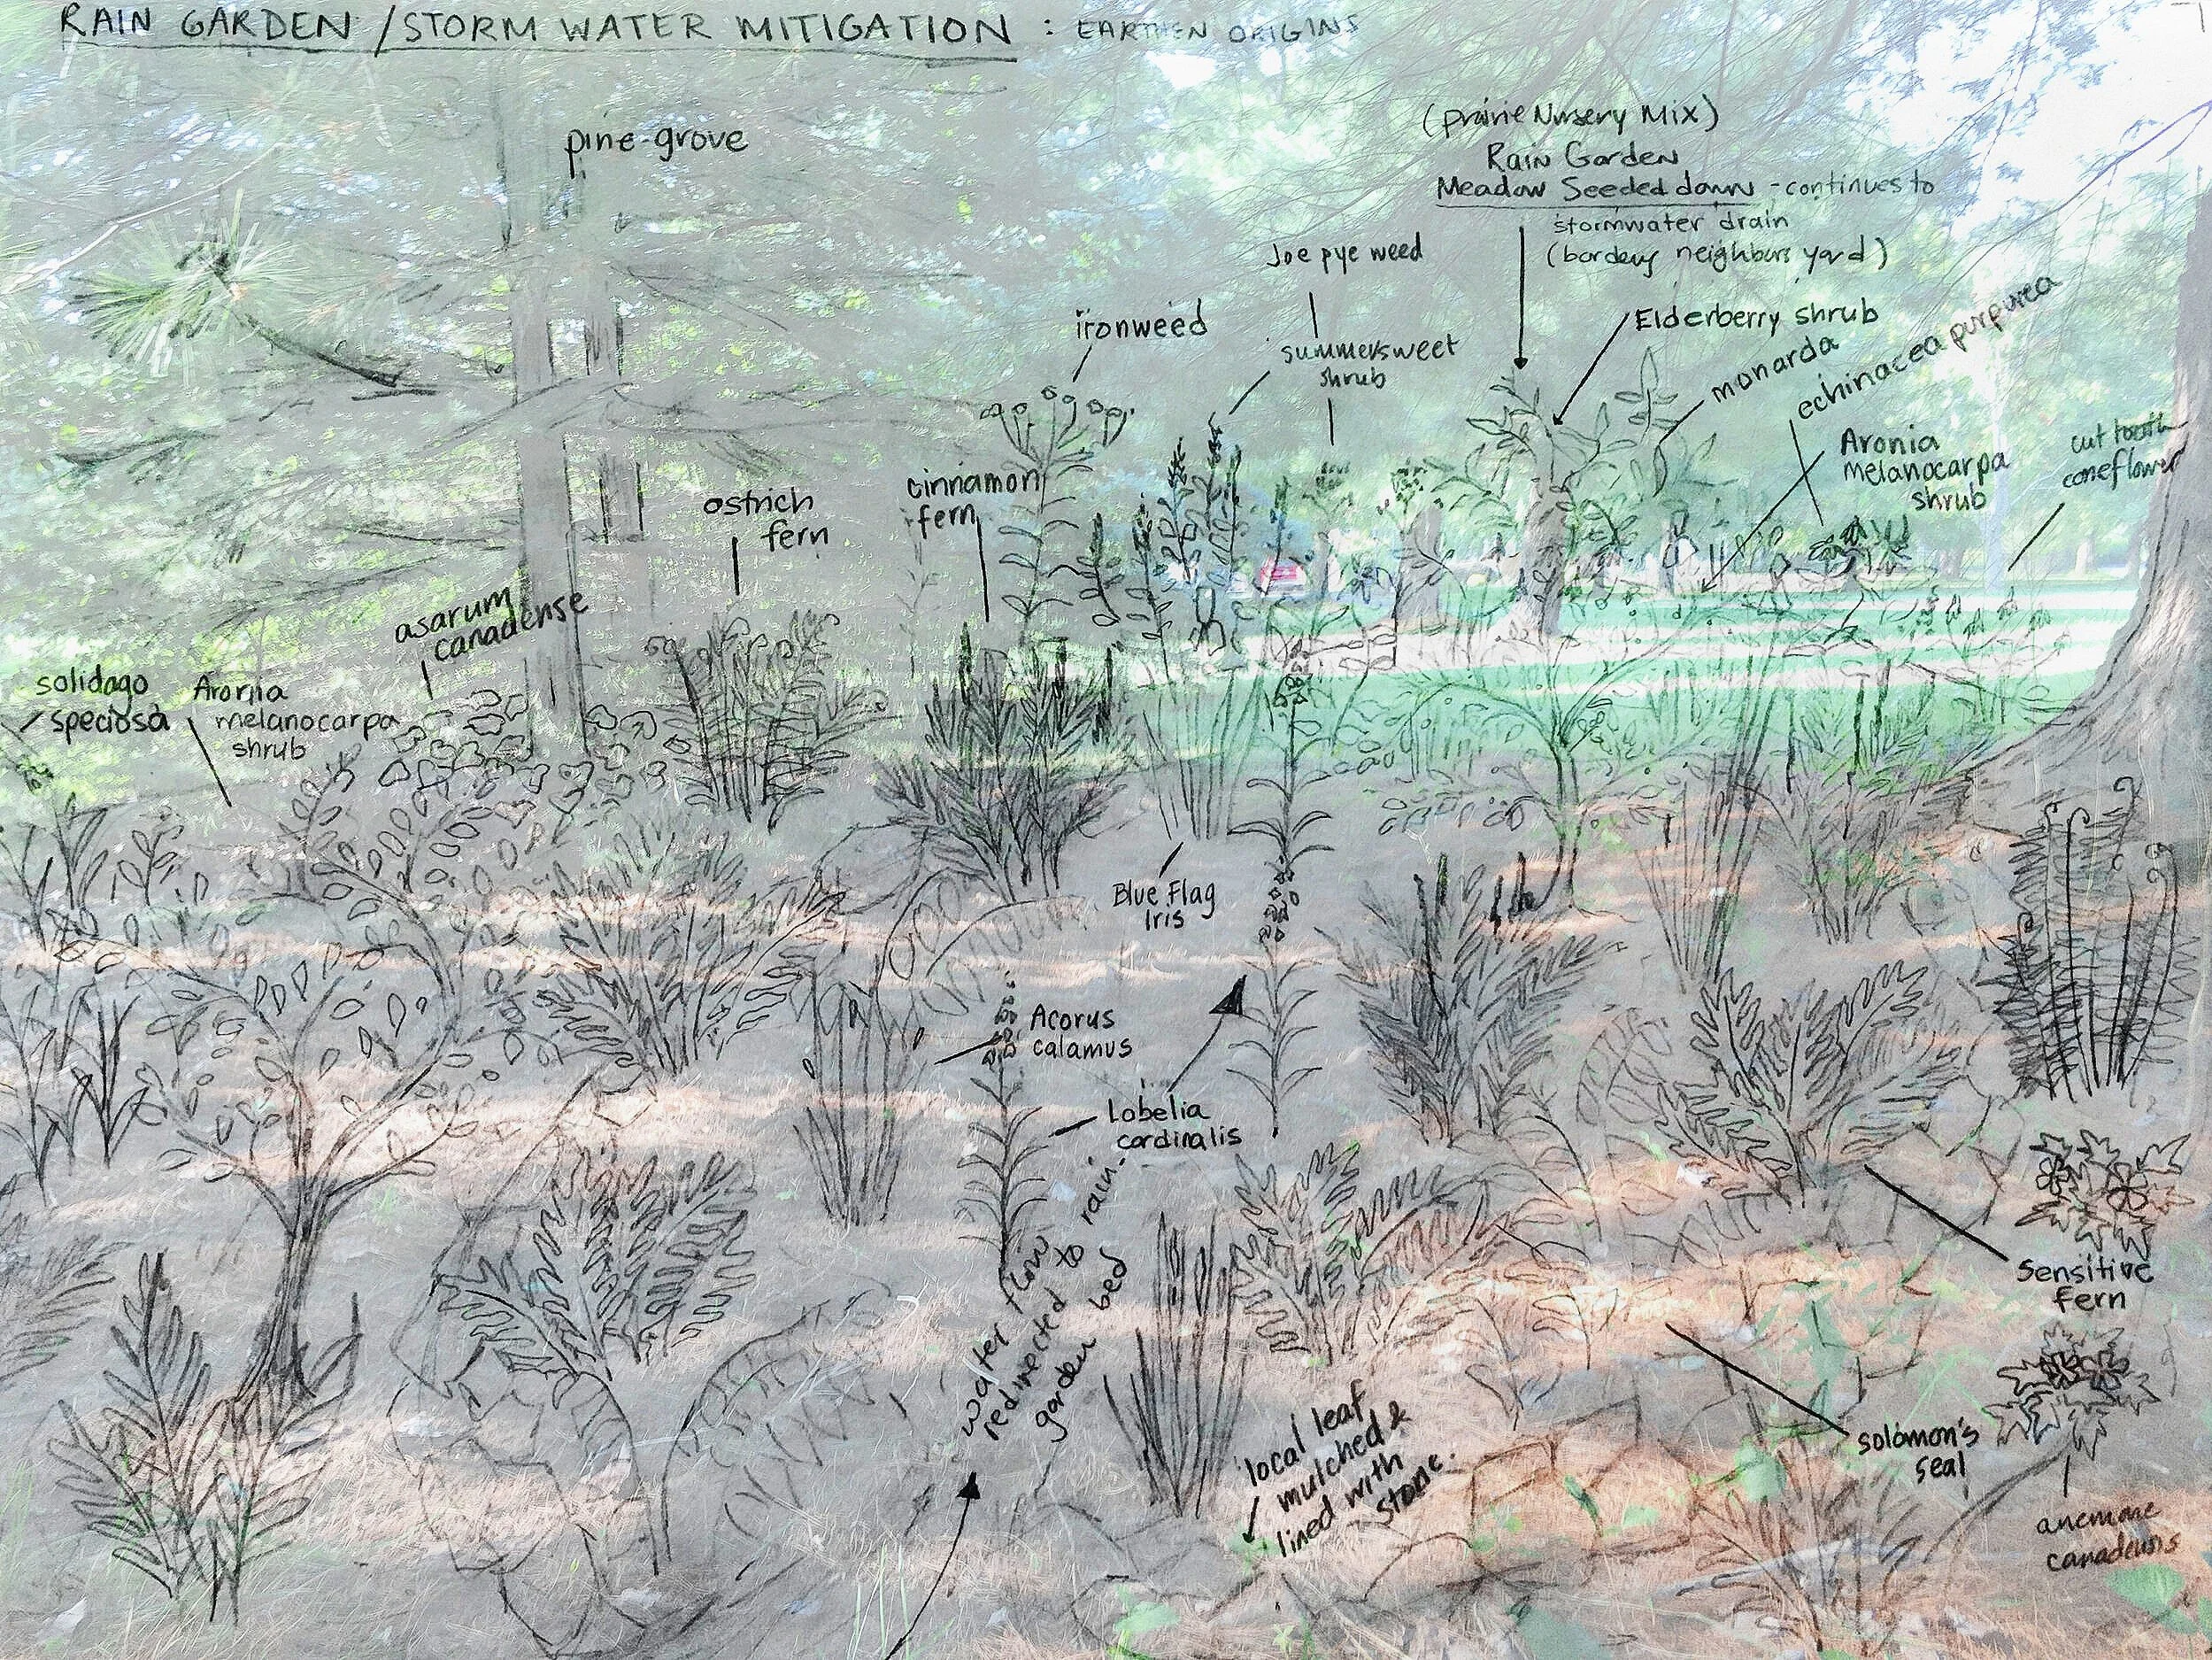 RAIN GARDEN / STORM WATER MITIGATION : EARTHEN ORIGINS
pine-grove
(Prairie Nursery Mix)
Rain Garden
Meadow Seeded down - continues to
stormwater drain
(borders neighbors yard)
Joe pye weed
ironweed
summersweet
shrub
Elderberry shrub
monarda
echinacea purpurea
Aronia
melanocarpa
shrub
cut tooth
coneflower
cinnamon
fern
ostrich
fern
asarum
canadense
solidago
speciosa
Aronia
melanocarpa
shrub
Blue Flag
Iris
Acorus
calamus
Lobelia
cardinalis
water flow
redirected to rain-
garden bed
local leaf
mulched &
lined with
stone.
Sensitive
fern
solomon's
seal
anemone
canadensis